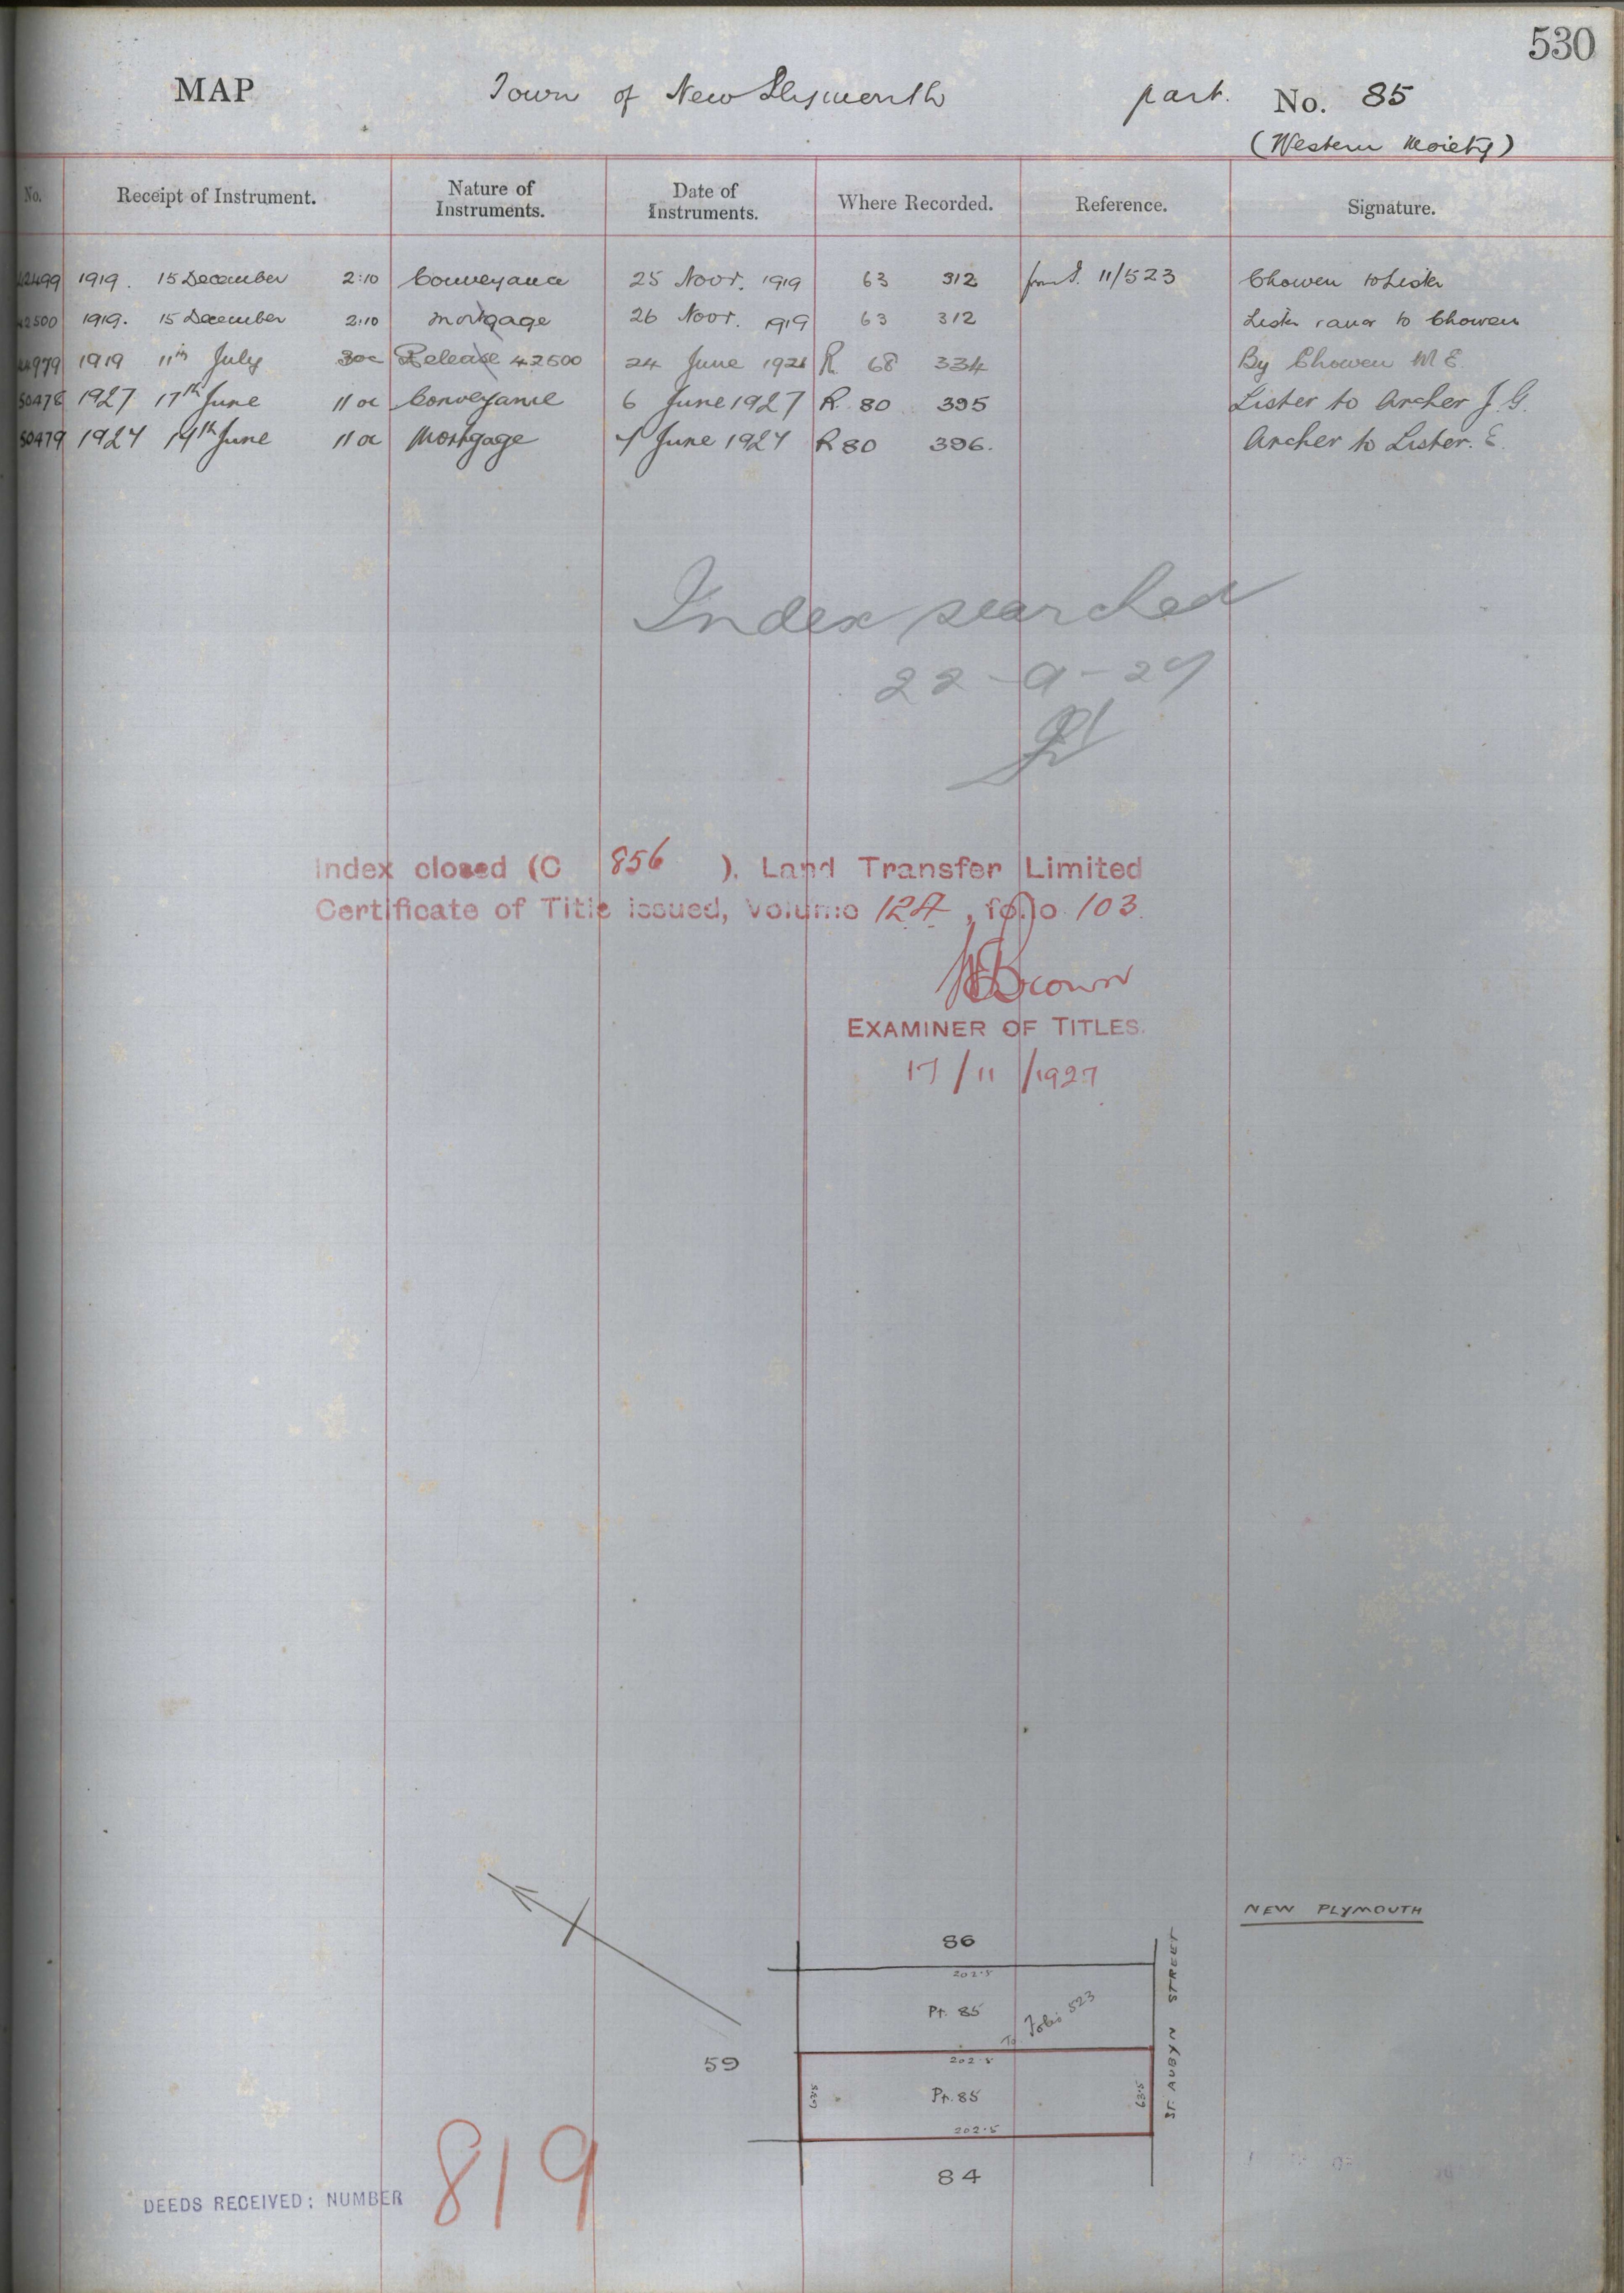 530
MAP Town of New Plymouth part. No. 85
(Western Moiety)
No. Receipt of Instrument. Nature of Instruments. Date of Instruments. Where Recorded. Reference. Signature.
42499 1919. 15 December 2:10 Conveyance 25 Novr. 1919 63 312 from I. 11/523 Chowen to Lister
42500 1919. 15 December 2:10 Mortgage 26 Novr. 1919 63 312 Lister to Chowen
44979 1919 11th July Release 42500 24 June 1921 R 68 334 By Chowen M E
50478 1927 17th June 11 oc Conveyance 6 June 1927 R. 80 395 Lister to Archer J. G.
50479 1927 17th June 11 oc Mortgage 7 June 1927 R 80 396. Archer to Lister. E.
Index searched
22-9-27
Index closed (C 856 ). Land Transfer Limited
Certificate of Title issued, Volume 124, folio 103.
Brown
EXAMINER OF TITLES.
17/11/1927
NEW PLYMOUTH
86
202.5
Pt. 85
To Folio 523
ST. AUBYN STREET
59
202.5
63.5
Pt. 85
63.5
202.5
84
DEEDS RECEIVED: NUMBER 819